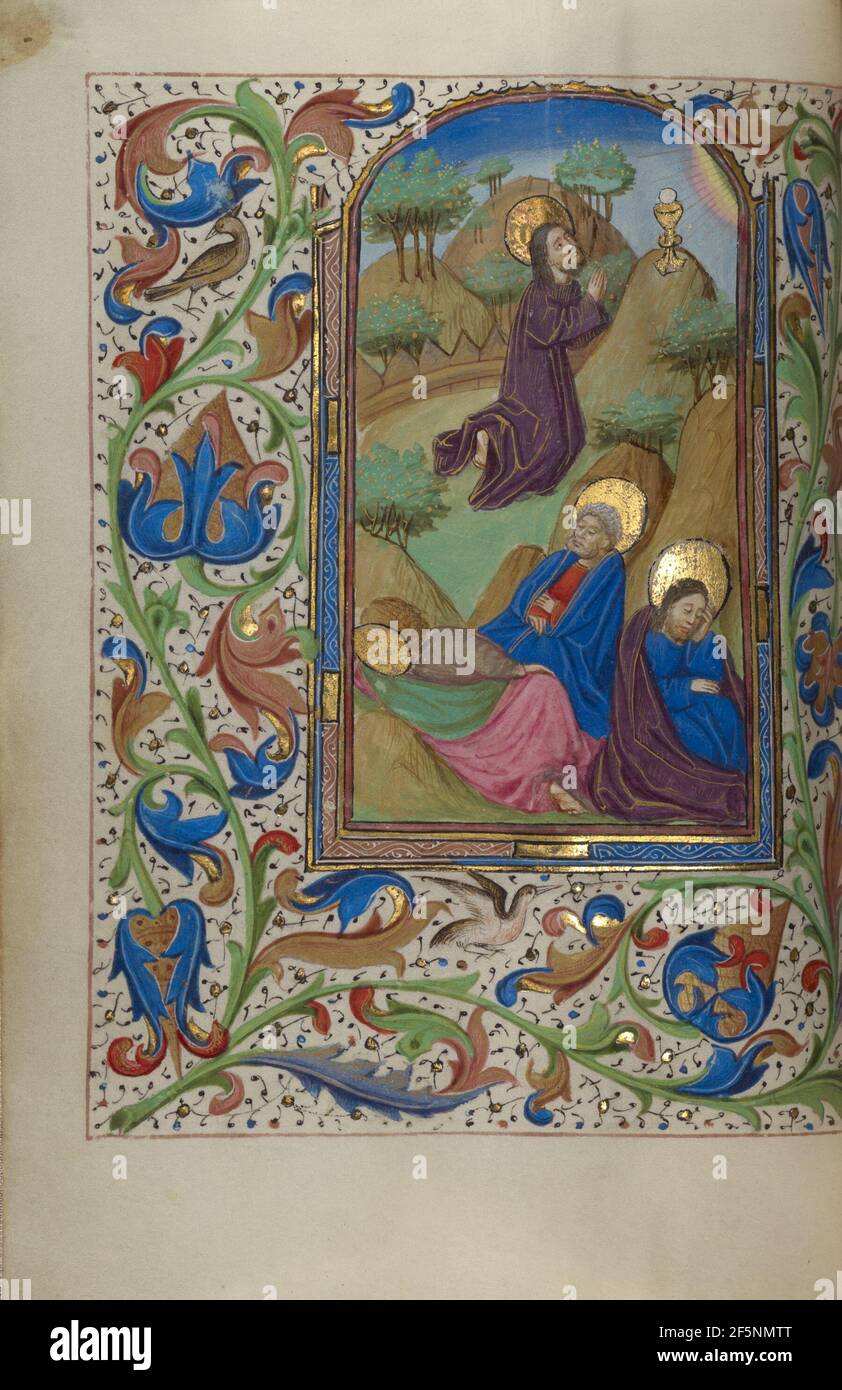 alamy
Image ID: 2F5NMTT
www.alamy.com